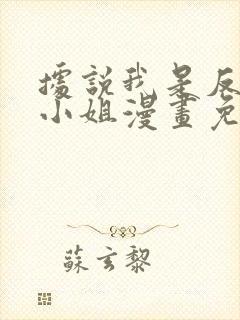 據説我是反
小姐漫畫免
蘇玄黎